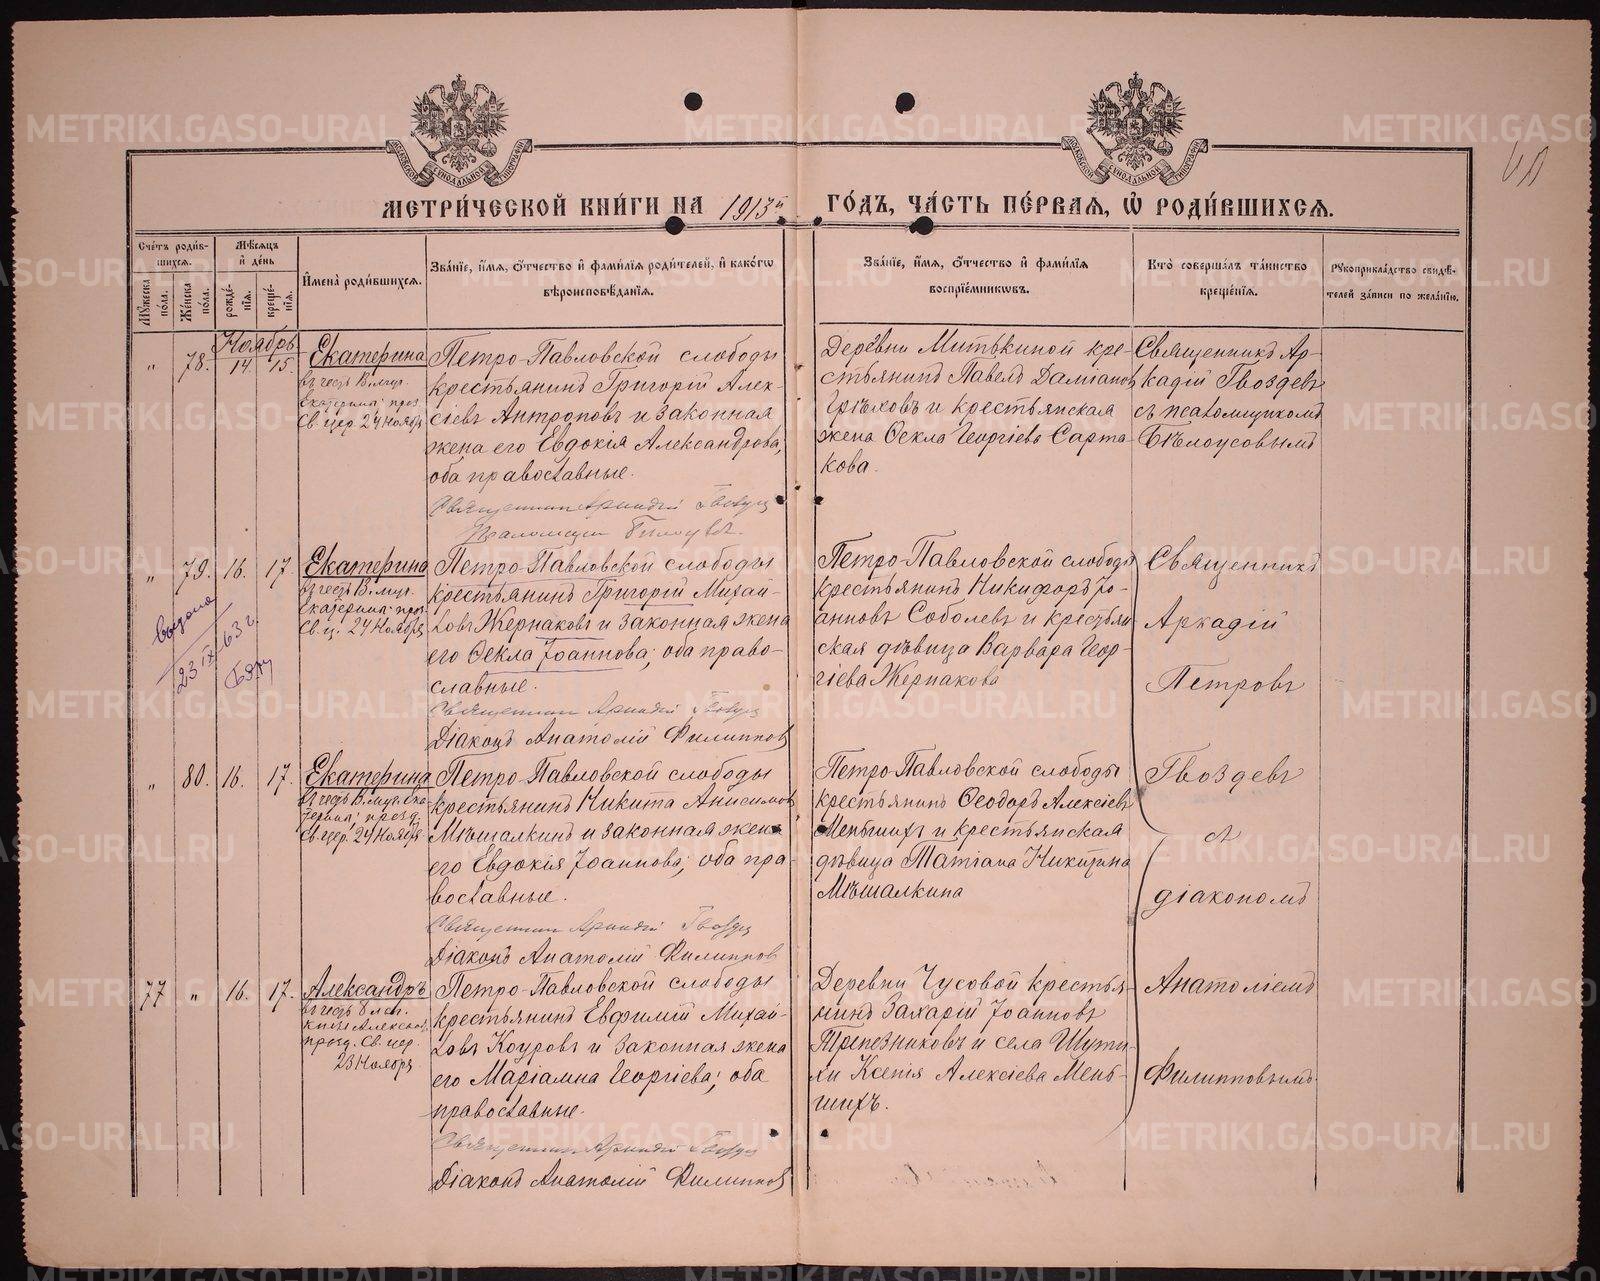 МЕТРИ́ЧЕСКОЙ КНИ́ГИ НА 1913й ГО́ДЪ, ЧА́СТЬ ПЕ́РВАЯ, Ѽ РОДИ́ВШИХСЯ.
Сче́тъ роди́в-
шихся.
Мѣ́сяцъ
и҆ де́нь
Мꙋ́жеска по́ла.
Же́нска по́ла.
рожде́-
нїя.
креще́-
нїя.
И҆мена̀ роди́вшихся.
Зва́нїе, и҆́мя, ѻ҆́тчество и҆ фами́лїя роди́телей, и҆ како́гѡ
вѣроисповѣ́данїя.
Зва́нїе, и҆́мя, ѻ҆́тчество и҆ фами́лїя
воспрїе́мниковъ.
Кто̀ соверша́лъ та́инство
креще́нїя.
Рꙋкоприкла́дство свидѣ́-
телей за́писи по жела́нїю.
Ноябрь
„ 78. 14. 15. Екатерина
въ честь В.муч.
Екатерины; празд.
Св. цер. 24 Ноября
Петро-Павловской слободы
крестьянинъ Григорій Алек-
сіевъ Антроповъ и законная
жена его Евдокія Александрова,
оба православные.
Священникъ Аркадій Гвоздевъ
Псаломщикъ Бѣлоусовъ
Деревни Митькиной кре-
стьянинъ Павелъ Даміановъ
Грѣховъ и крестьянская
жена Ѳекла Георгіева Сарта-
кова.
Священникъ Ар-
кадій Гвоздевъ
съ псаломщикомъ
Бѣлоусовымъ
„ 79. 16. 17. Екатерина
въ честь В.муч.
Екатерины; праз.
Св. ц. 24 Ноября
выдана
23 IX 63 г.
Петро-Павловской слободы
крестьянинъ Григорій Михай-
ловъ Жернаковъ и законная жена
его Ѳекла Іоаннова; оба право-
славные.
Священникъ Аркадій Гвоздевъ
Діаконъ Анатолій Филипповъ
Петро-Павловской слободы
крестьянинъ Никифоръ Іо-
анновъ Соболевъ и крестьян-
ская дѣвица Варвара Геор-
гіева Жернакова
Священникъ
Аркадій
Петровъ
„ 80. 16. 17. Екатерина
въ честь В.муч. Ека-
терины; празд.
Св. цер. 24 Ноября
Петро-Павловской слободы
крестьянинъ Никита Анисимовъ
Мѣшалкинъ и законная жена
его Евдокія Іоаннова; оба пра-
вославные.
Священникъ Аркадій Гвоздевъ
Діаконъ Анатолій Филипповъ
Петро-Павловской слободы
крестьянинъ Ѳеодоръ Алексіевъ
Меньшихъ и крестьянская
дѣвица Татіана Никитина
Мѣшалкина
Гвоздевъ
съ
діакономъ
77 „ 16. 17. Александръ
въ честь Благ.
князя Александ.
празд. Св. цер.
23 Ноября
Петро-Павловской слободы
крестьянинъ Евфимій Михай-
ловъ Коуровъ и законная жена
его Маріамна Георгіева; оба
православные.
Священникъ Аркадій Гвоздевъ
Діаконъ Анатолій Филипповъ
Деревни Чусовой крестья-
нинъ Захарій Іоанновъ
Трапезниковъ и села Шути-
хи Ксенія Алексіева Мень-
шихъ.
Анатоліемъ
Филипповымъ.